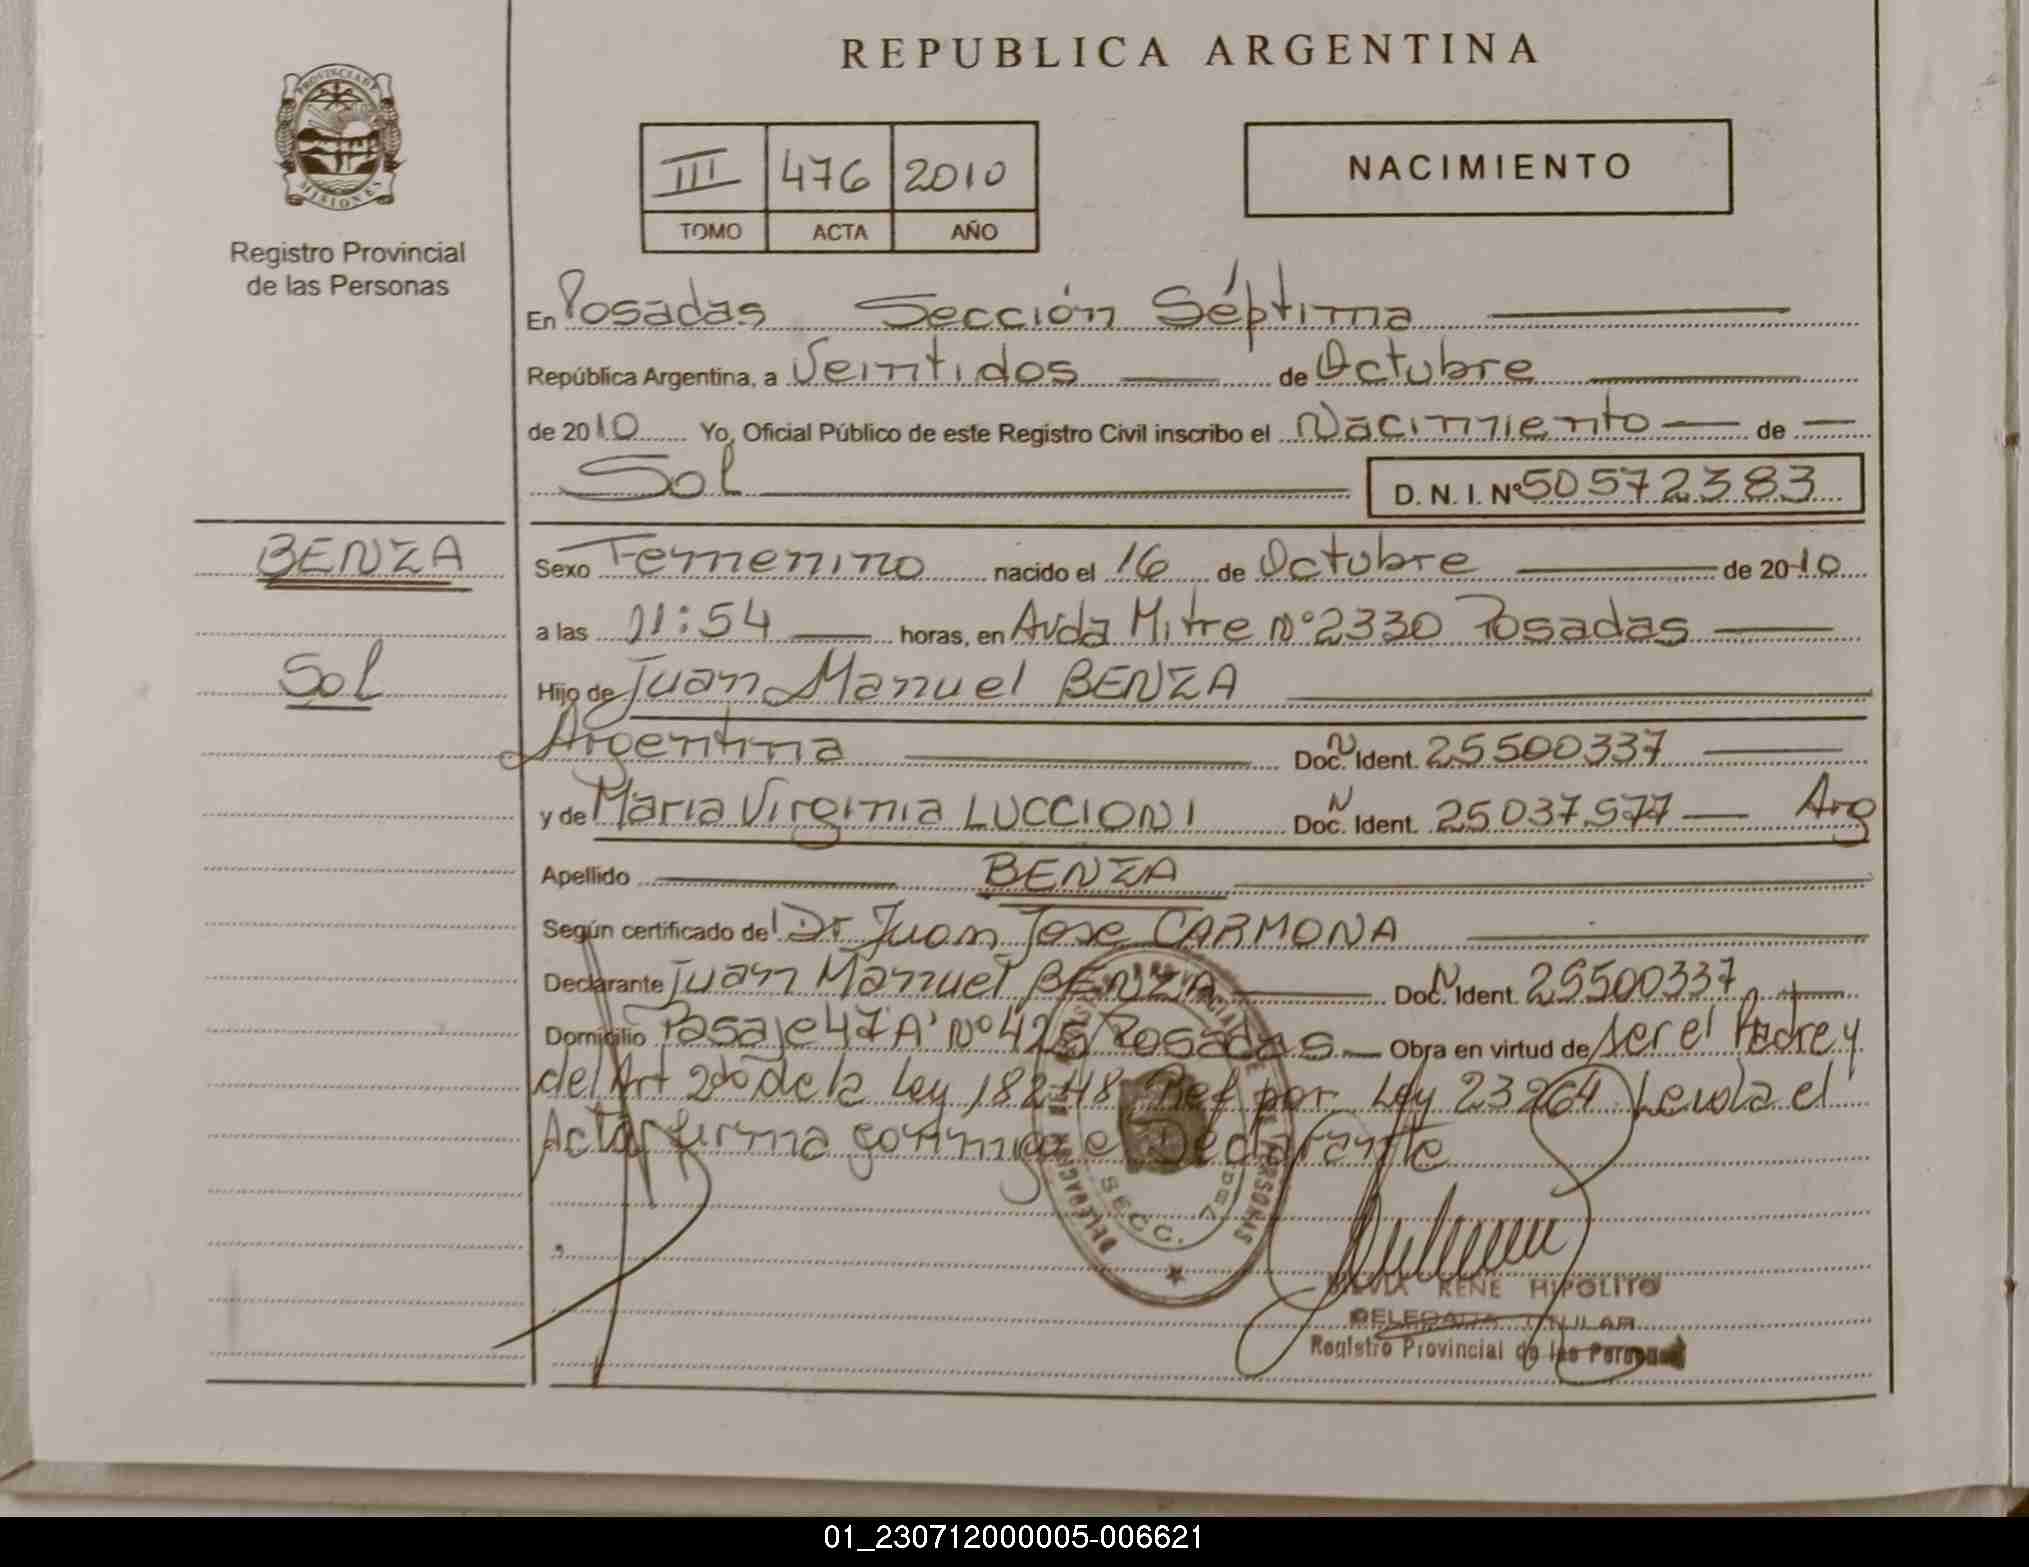 REPUBLICA ARGENTINA
PROVINCIA DE
MISIONES
Registro Provincial
de las Personas
III 476 2010
TOMO ACTA AÑO
NACIMIENTO
En Posadas Sección Séptima
República Argentina, a Veintidos de Octubre
de 2010 Yo, Oficial Público de este Registro Civil inscribo el Nacimiento de
Sol D. N. I. Nº 50572383
BENZA
Sol
Sexo Femenino nacido el 16 de Octubre de 2010
a las 11:54 horas, en Avda Mitre Nº 2330 Posadas
Hijo de Juan Manuel BENZA
Argentina Doc. N Ident. 25500337
y de Maria Virginia LUCCIONI Doc. N Ident. 25037977 Arg
Apellido BENZA
Según certificado del Dr Juan Jose CARMONA
Declarante Juan Manuel BENZA Doc. N Ident. 25500337
Domicilio Pasaje 47 'A' Nº 425 Posadas Obra en virtud de ser el Padre y
del Art 2do de la Ley 18248 Ref por Ley 23264 Leida el
Acta firma conmigo el Declarante
SECC. 7ma
RENE HIPOLITO
DELEGADA TITULAR
Registro Provincial de las Personas
01_230712000005-006621